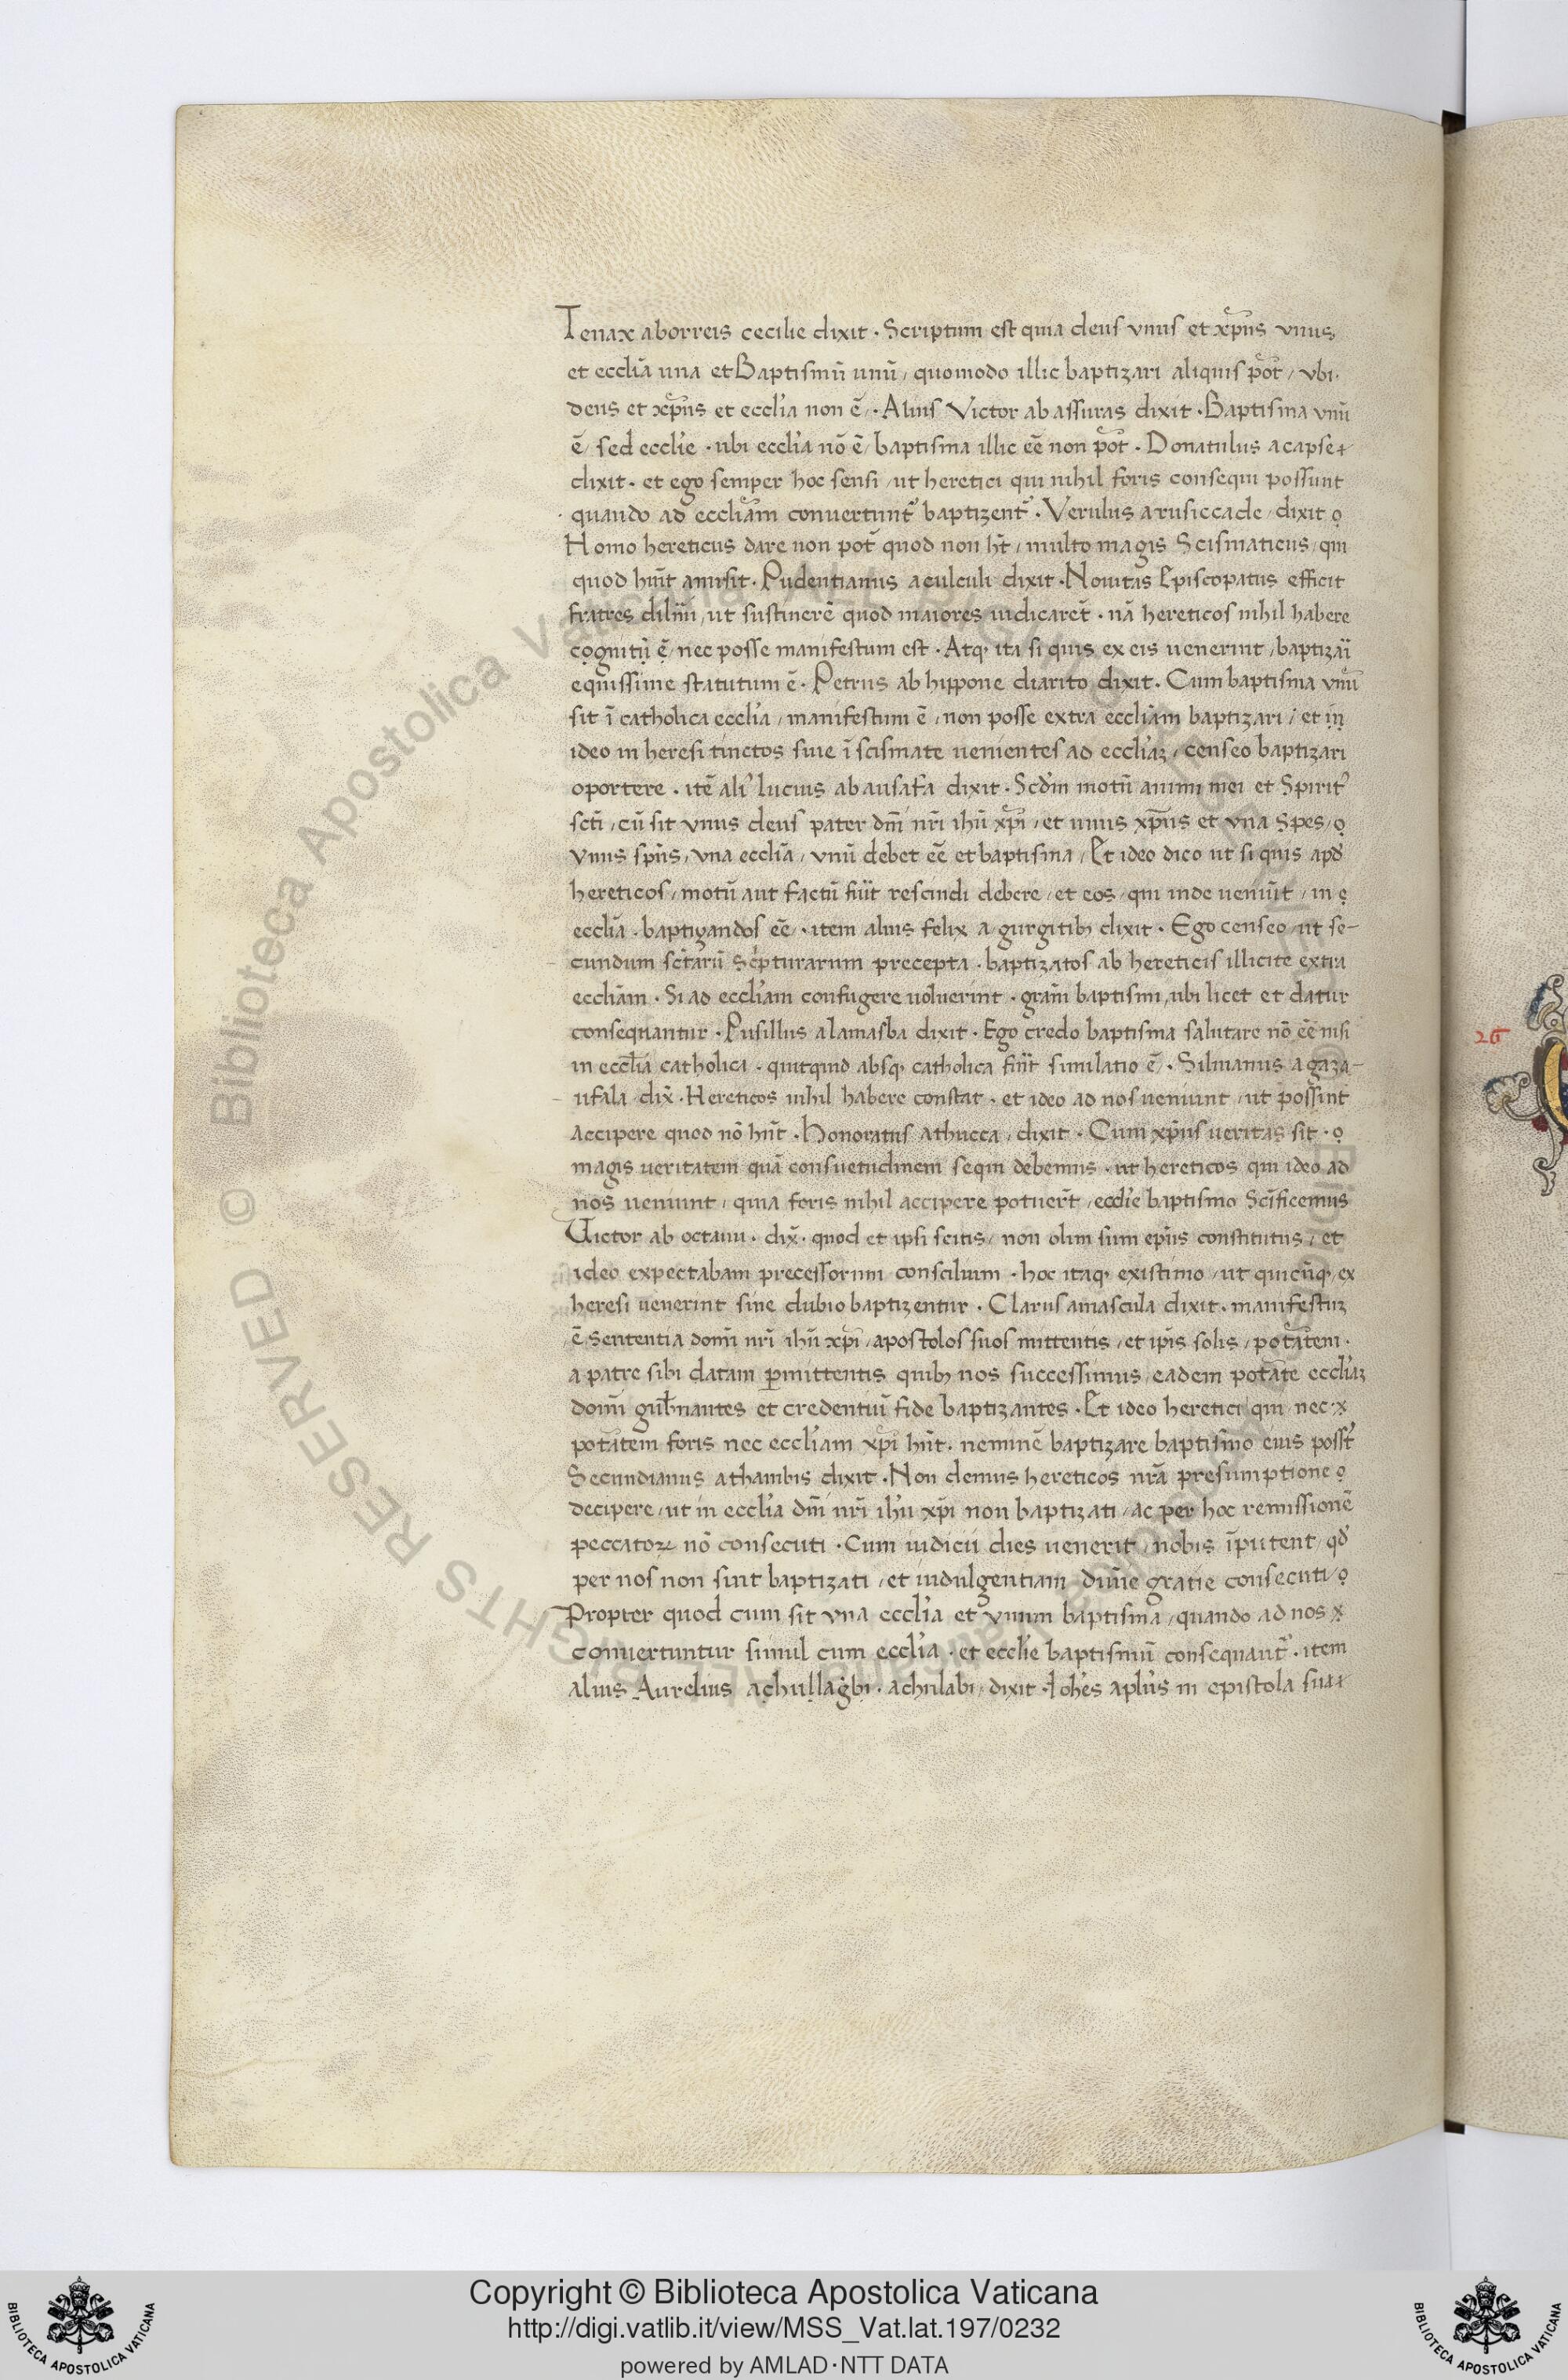 Tenax aborreis cecilie dixit · Scriptum est quia deus vnus et xp̄ns vnus
et eccliā una et Baptismū unū / quomodo illic baptizari aliquis pōt / vbi·
deus et xp̄ns et eccl'ia non ē / · Alius Victor ab assuras dixit · Baptisma vnū
ē / sed eccl'ie · ubi eccl'ia nō ē / baptisma illic eē non pōt · Donatulus a capse
dixit · et ego semper hoc sensi / ut heretici qui nihil foris consequi possunt
quando ad eccliām conuertunt᷑ baptizent᷑ · Verulus a rusiccade / dixit
Homo hereticus dare non pot᷑ quod non ht̄ / multo magis Scismaticus / qui
quod hūit amisit · Pudentianus a culculi dixit · Nouitas Episcopatus efficit
fratres dilmi / ut sustinerē quod maiores iudicaret̄ · nā hereticos nihil habere
cognitū ē / nec posse manifestum est · Atq; ita si quis ex eis uenerint / baptizari
equissime statutum ē · Petrus ab hippone diarito dixit · Cum baptisma vnū
sit ī catholica eccl'ia / manifestum ē / non posse extra eccliām baptizari / et in
ideo in heresi tinctos siue ī scismate uenientes ad eccl'iaʒ / censeo baptizari
oportere · itē ali' lucius ab ausafa dixit · Scd'm motū animi mei et Spirit'
scti / cū sit vnus deus pater dm̄i nr̄i ihū xp̄i / et unus xp̄ns et vna Spes /
vnus sp̄ns / vna eccliā / vnū debet eē et baptisma / Et ideo dico ut si quis apd'
hereticos / motū aut factū fūit rescindi debere / et eos / qui inde ueniūt / in
eccliā · baptizandos eē / · item alius felix a / gurgitib; dixit · Ego censeo / ut se-
cundum sctarū Scripturarum precepta · baptizatos ab hereticis illicite extra
eccliām · Si ad eccl'iam confugere uoluerint · gram̄ baptismi / ubi licet et datur
consequantur · Pusillus a lamasba dixit · Ego credo baptisma salutare nō eē nisi
in eccl̄ia catholica · quitquid absq; catholica fūit simulatio ē / · Siluianus a gaza-
ufala / dix̄ · Hereticos nihil habere constat · et ideo ad nos ueniunt / ut possint
accipere quod nō hn̄t · Honoratus a thucca / dixit · Cum xp̄ns ueritas sit ·
magis ueritatem quā consuetudinem sequi debemus · ut hereticos qui ideo ad
nos ueniunt / quia foris nihil accipere potuert̄ / eccl'ie baptismo Scificemus
Uictor ab octauu · dix̄ · quod et ipsi scitis / non olim sum ep̄us constitutus / et
ideo expectabam precessorum consilium · hoc itaq; existimo / ut quicūq; ex
heresi uenerint sine dubio baptizentur · Clarus a mascula dixit · manifestuʒ
ē Sententia domī nr̄i ihū xp̄i / apostolos suos mittentis / et ip̄is solis / potātem ·
a patre sibi datam ꝑmittentis quib; nos successimus / eadem potāte eccl'iaʒ
domī gub̄nantes et credentiū fide baptizantes · Et ideo heretici qui nec
potātem foris nec eccl'iam xp̄i hn̄t · neminē baptizare baptismo eius posst᷑
Secundianus a thambis dixit · Non demus hereticos nr̄a presumptione
decipere / ut in eccl'ia dm̄i nr̄i ihū xp̄i non baptizati / ac per hoc remissionē
peccatoꝝ nō consecuti · Cum iudicii dies uenerit / nobis īputent / qd'
per nos non sint baptizati / et indulgentiam diuīe gratie consecuti /
Propter quod cum sit vna eccl'ia et vnum baptisma / quando ad nos
conuertuntur simul cum eccl'ia · et eccl'ie baptismū consequant᷑ · item
alius Aurelius achullagbi · achulabi / dixit · Ioh'es apl'us in epistola sua
26
© Biblioteca Apostolica Vaticana
ALL RIGHTS RESERVED
Copyright © Biblioteca Apostolica Vaticana
http://digi.vatlib.it/view/MSS_Vat.lat.197/0232
powered by AMLAD·NTT DATA
BIBLIOTECA APOSTOLICA VATICANA
BIBLIOTECA APOSTOLICA VATICANA